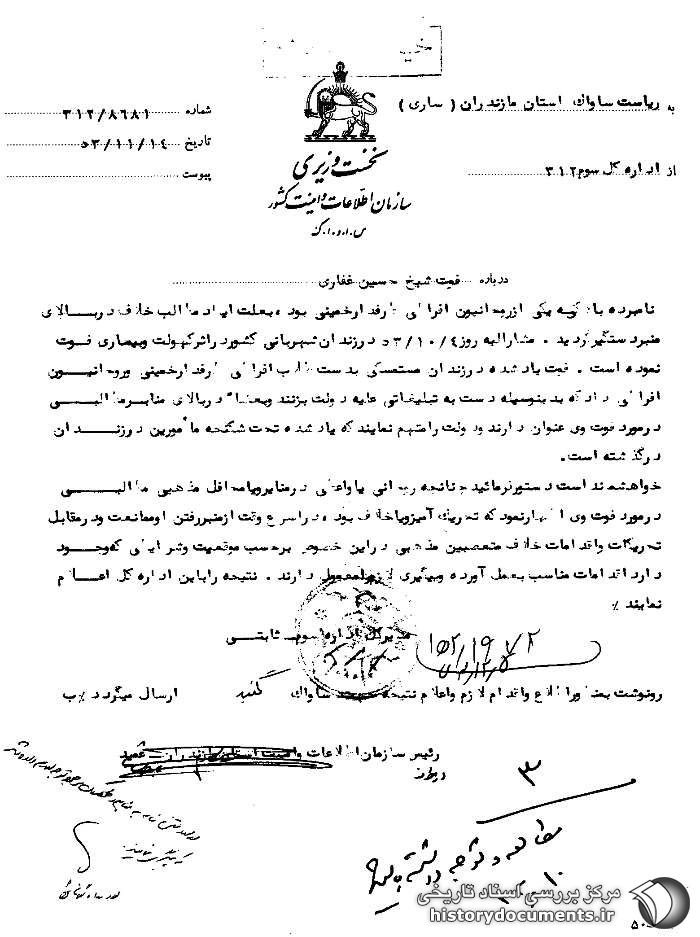 خیـ
به ریاست ساواك استان مازندران ( ساری )
شماره ۳۱۲/۸۶۸۱
تاریخ ۵۳/۱۱/۱۴
از اداره کل سوم ۳۱۲
پیوست
نخست وزیری
سازمان اطلاعات و امنیت کشور
س.ا.و.ا.ک
درباره فوت شیخ حسین غفاری
نامبرده بالا که یکی از روحانیون افراطی طرفدار خمینی بوده بعلت ایراد مطالب خلاف در بالای
منبر دستگیر گردید . مشارالیه روز ۵۳/۱۰/۴ در زندان شهربانی کشور در اثر کهولت و بیماری فوت
نموده است . فوت یاد شده در زندان مستمسکی بدست طلاب افراطی طرفدار خمینی و روحانیون
افراطی داد که بدینوسیله دست به تبلیغاتی علیه دولت بزنند و بعضا در بالای منابر مطالبی
در مورد فوت وی عنوان دارند و دولت را متهم نمایند که یاد شده تحت شکنجه مأمورین در زندان
درگذشته است.
خواهشمند است دستور فرمائید چنانچه روحانی یا واعظی در منابر و یا محافل مذهبی مطالبی
در مورد فوت وی اظهار نمود که تحریك آمیز و یا خلاف بوده در اسرع وقت از منبر رفتن او ممانعت و در مقابل
تحریکات و اقدامات خلاف متعصبین مذهبی در این خصوص بر حسب موقعیت و شرایطی که وجود
دارد اقدامات مناسب بعمل آورده و پیگیری لازم معمول دارند . نتیجه را باین اداره کل اعلام
نمایند ٪
مدیر کل اداره سوم ثابتی
رونوشت بمنظور اطلاع و اقدام لازم و اعلام نتیجه ساواك گنبد ارسال میگردد ٪ب
رئیس سازمان اطلاعات و امنیت استان مازندران
۳
مرکز بررسی اسناد تاریخی
historydocuments.ir